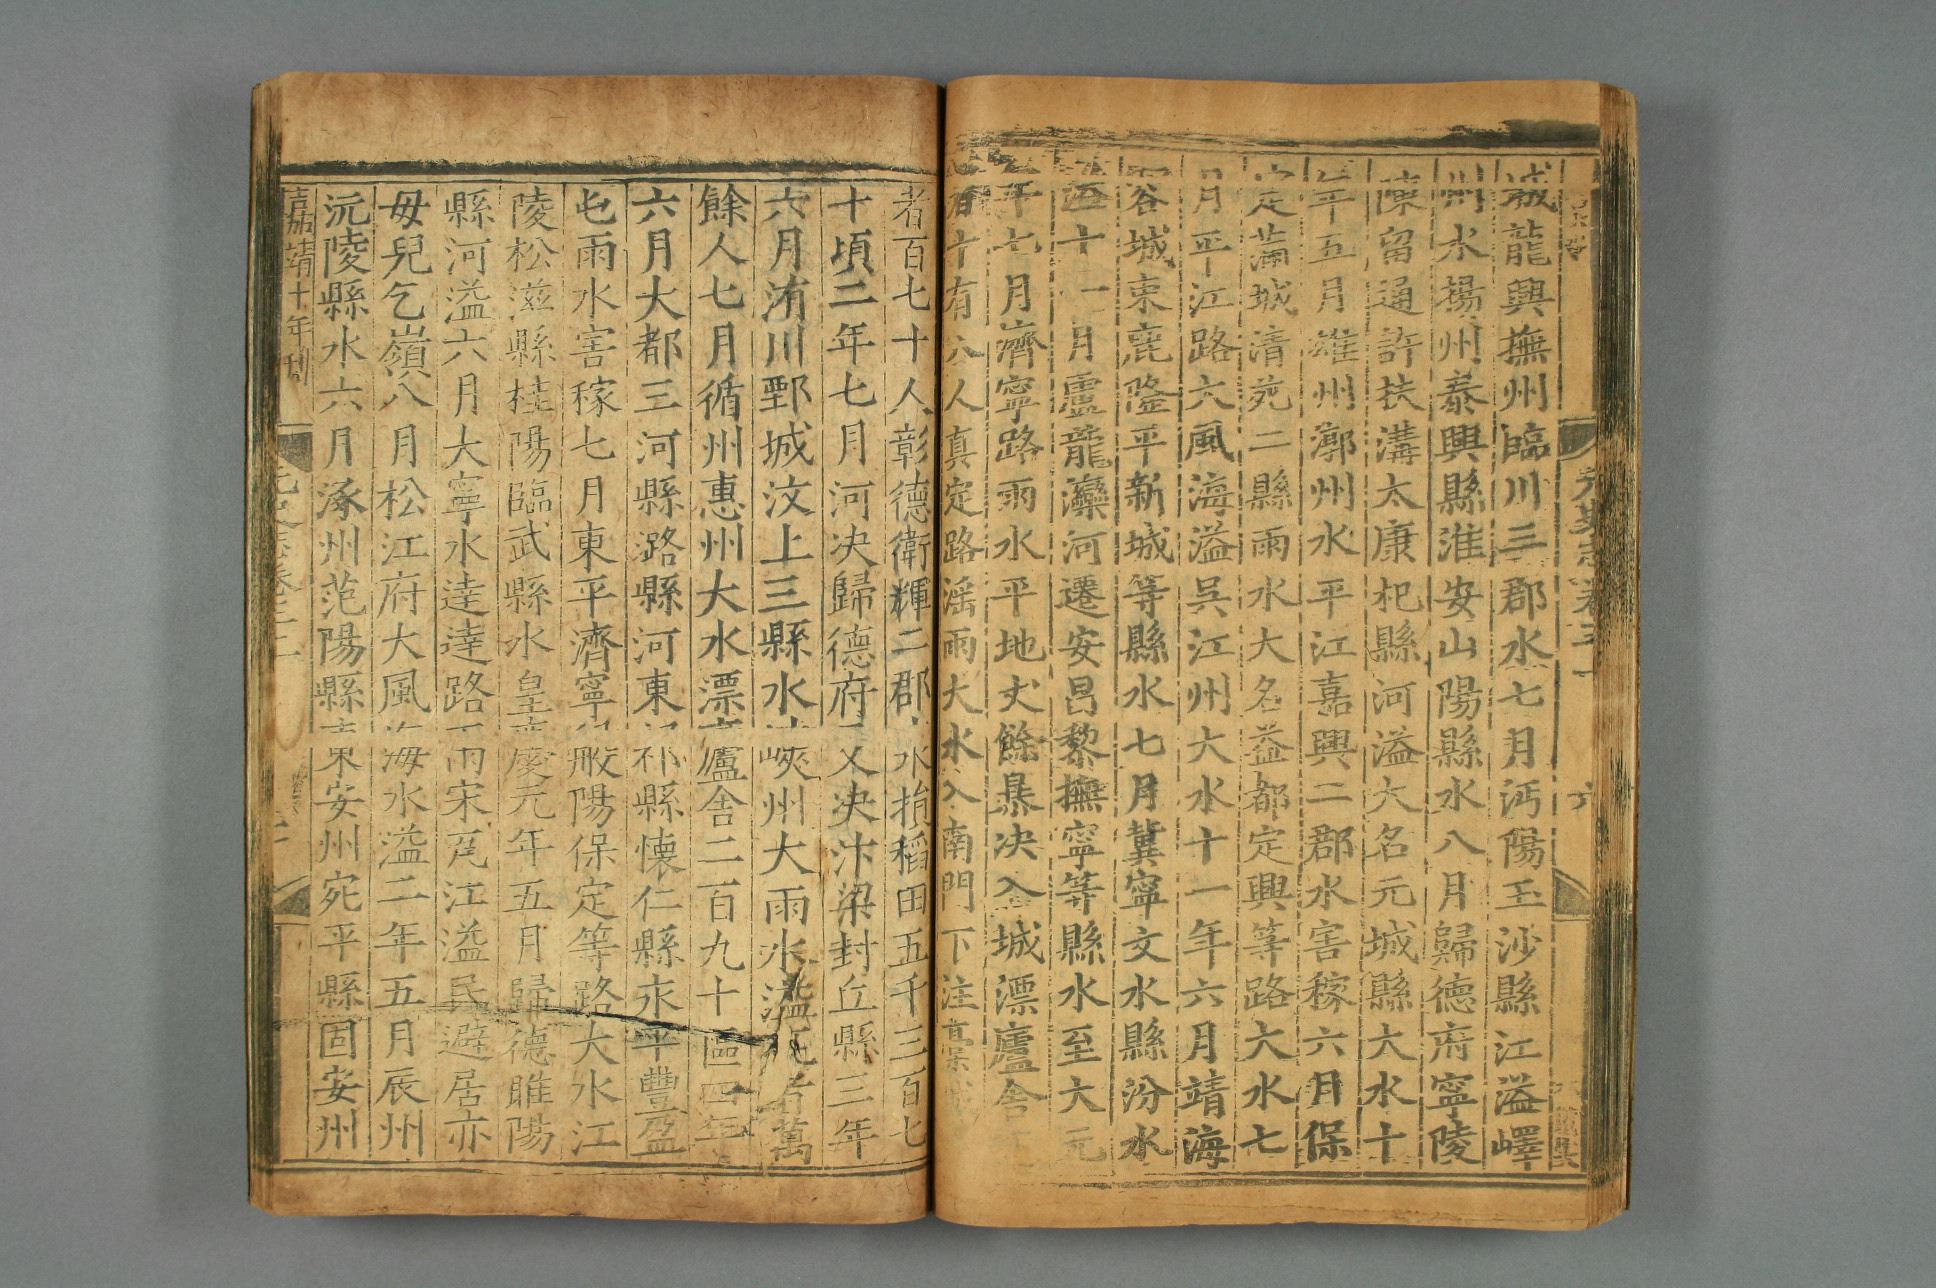 城龍興撫州臨川三郡水七月沔陽玉沙縣江溢嶧
州水揚州泰興縣淮安山陽縣水八月歸德府寧陵
陳留通許扶溝太康杞縣河溢大名元城縣大水十
年五月雄州漷州水平江嘉興二郡水害稼六月保
定蒲城清苑二縣雨水大名益都定興等路大水七
月平江路六風海溢吳江州大水十一年六月靖海
容城束鹿隆平新城等縣水七月冀寧文水縣汾水
溢十一月盧龍灤河遷安昌黎撫寧等縣水至大元
年七月濟寧路雨水平地丈餘暴決入城漂廬舍死
者十有八人真定路滛雨大水入南門下注藁城
元史志卷三
六
者百七十人彰德衛輝二郡水損稻田五千三百七
十頃二年七月河決歸德府又決汴梁封丘縣三年
六月洧川鄄城汶上三縣水峽州大雨水溢死者萬
餘人七月循州惠州大水漂廬舍二百九十區四年
六月大都三河縣潞縣河東祁縣懷仁縣永平豐盈
屯雨水害稼七月東平濟寧般陽保定等路大水江
陵松滋縣桂陽臨武縣水皇慶元年五月歸德睢陽
縣河溢六月大寧水達達路雨宋瓦江溢民避居亦
毋兒乞嶺八月松江府大風海水溢二年五月辰州
沅陵縣水六月涿州范陽縣東安州宛平縣固安州
嘉靖十年刊
元史志卷三